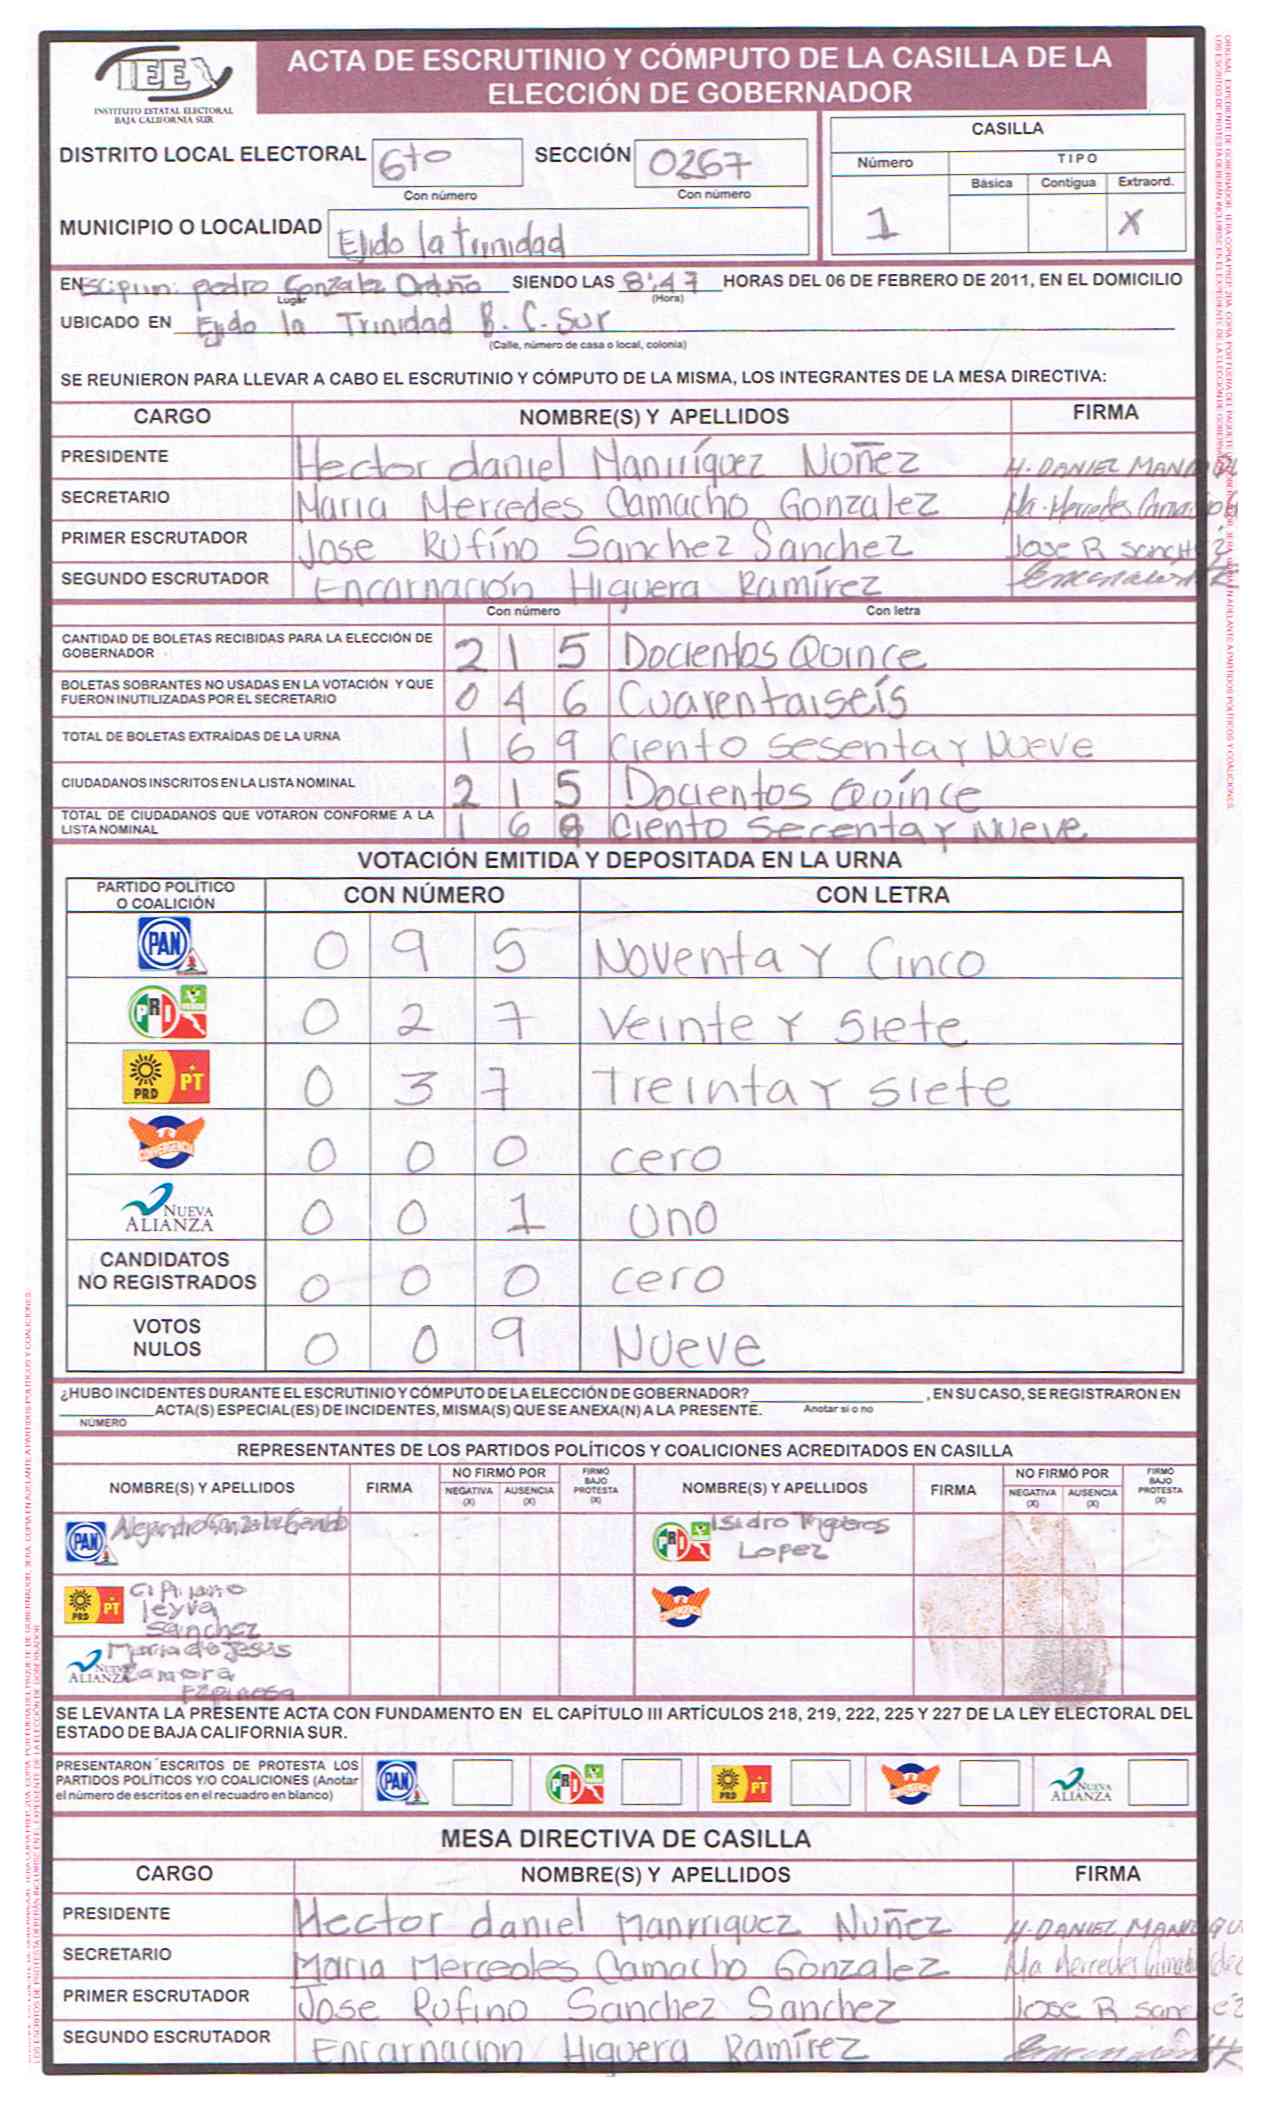 IEE
INSTITUTO ESTATAL ELECTORAL
BAJA CALIFORNIA SUR
ACTA DE ESCRUTINIO Y CÓMPUTO DE LA CASILLA DE LA
ELECCIÓN DE GOBERNADOR
DISTRITO LOCAL ELECTORAL 6to SECCIÓN 0267
Con número Con número
MUNICIPIO O LOCALIDAD Ejido la trinidad
CASILLA
Número TIPO
Básica Contigua Extraord.
1 X
EN pedro Gonzalez Orduño SIENDO LAS 8:47 HORAS DEL 06 DE FEBRERO DE 2011, EN EL DOMICILIO
Lugar (Hora)
UBICADO EN Ejido la Trinidad B.C.Sur
(Calle, número de casa o local, colonia)
SE REUNIERON PARA LLEVAR A CABO EL ESCRUTINIO Y CÓMPUTO DE LA MISMA, LOS INTEGRANTES DE LA MESA DIRECTIVA:
CARGO NOMBRE(S) Y APELLIDOS FIRMA
PRESIDENTE Hector daniel Manrríquez Nuñez H. DANIEL
SECRETARIO Maria Mercedes Camacho Gonzalez Ma. Mercedes Camacho
PRIMER ESCRUTADOR Jose Rufino Sanchez Sanchez Jose R Sanchez
SEGUNDO ESCRUTADOR Encarnación Higuera Ramírez
Con número Con letra
CANTIDAD DE BOLETAS RECIBIDAS PARA LA ELECCIÓN DE
GOBERNADOR 2 1 5 Docientos Quince
BOLETAS SOBRANTES NO USADAS EN LA VOTACIÓN Y QUE
FUERON INUTILIZADAS POR EL SECRETARIO 0 4 6 Cuarentaiseís
TOTAL DE BOLETAS EXTRAÍDAS DE LA URNA 1 6 9 Ciento Sesenta y Nueve
CIUDADANOS INSCRITOS EN LA LISTA NOMINAL 2 1 5 Docientos Quínce
TOTAL DE CIUDADANOS QUE VOTARON CONFORME A LA
LISTA NOMINAL 1 6 9 Ciento Secenta y Nueve
VOTACIÓN EMITIDA Y DEPOSITADA EN LA URNA
PARTIDO POLÍTICO
O COALICIÓN CON NÚMERO CON LETRA
PAN 0 9 5 Noventa Y Cinco
PRI VERDE 0 2 7 Veinte Y Siete
PRD PT 0 3 7 Treinta Y Siete
CONVERGENCIA 0 0 0 cero
NUEVA ALIANZA 0 0 1 uno
CANDIDATOS
NO REGISTRADOS 0 0 0 cero
VOTOS
NULOS 0 0 9 Nueve
¿HUBO INCIDENTES DURANTE EL ESCRUTINIO Y CÓMPUTO DE LA ELECCIÓN DE GOBERNADOR? , EN SU CASO, SE REGISTRARON EN
ACTA(S) ESPECIAL(ES) DE INCIDENTES, MISMA(S) QUE SE ANEXA(N) A LA PRESENTE. Anotar si o no
NÚMERO
REPRESENTANTES DE LOS PARTIDOS POLÍTICOS Y COALICIONES ACREDITADOS EN CASILLA
NOMBRE(S) Y APELLIDOS FIRMA NO FIRMÓ POR NEGATIVA (X) AUSENCIA (X) FIRMÓ BAJO PROTESTA (X) NOMBRE(S) Y APELLIDOS FIRMA NO FIRMÓ POR NEGATIVA (X) AUSENCIA (X) FIRMÓ BAJO PROTESTA (X)
PAN Alejandro PRI Isidro
Lopez
PRD PT Cipriano
leyva
Sanchez
NUEVA ALIANZA Maria de Jesus
Zamora
Espinoza
SE LEVANTA LA PRESENTE ACTA CON FUNDAMENTO EN EL CAPÍTULO III ARTÍCULOS 218, 219, 222, 225 Y 227 DE LA LEY ELECTORAL DEL
ESTADO DE BAJA CALIFORNIA SUR.
PRESENTARON ESCRITOS DE PROTESTA LOS
PARTIDOS POLÍTICOS Y/O COALICIONES (Anotar
el número de escritos en el recuadro en blanco)
PAN PRI PRD PT NUEVA ALIANZA
MESA DIRECTIVA DE CASILLA
CARGO NOMBRE(S) Y APELLIDOS FIRMA
PRESIDENTE Hector daniel Manrriquez Nuñez H. DANIEL
SECRETARIO Maria Mercedes Camacho Gonzalez Ma Mercedes
PRIMER ESCRUTADOR Jose Rufino Sanchez Sanchez Jose R Sanchez
SEGUNDO ESCRUTADOR Encarnacion Higuera Ramírez